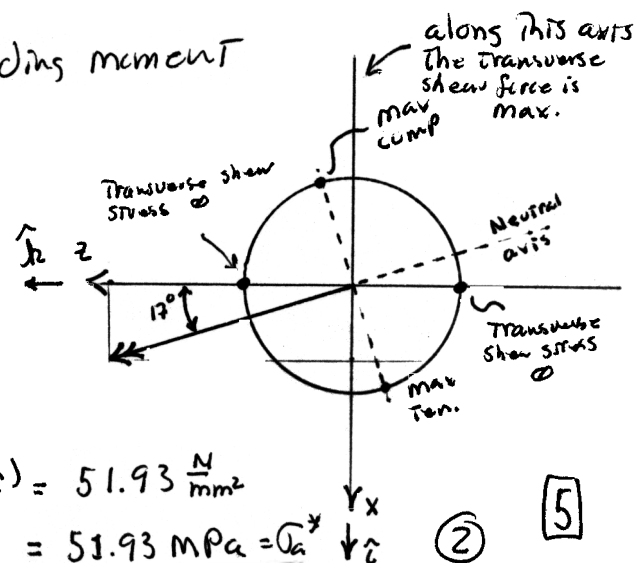 ding moment
along this axis
The transverse
shear force is
max.
max
comp
Transverse shear
stress ∅
Neutral
axis
k̂ z
17°
Transverse
shear stress
∅
max
Ten.
) = 51.93 N/mm²
x
5
= 51.93 MPa = σa* î
2